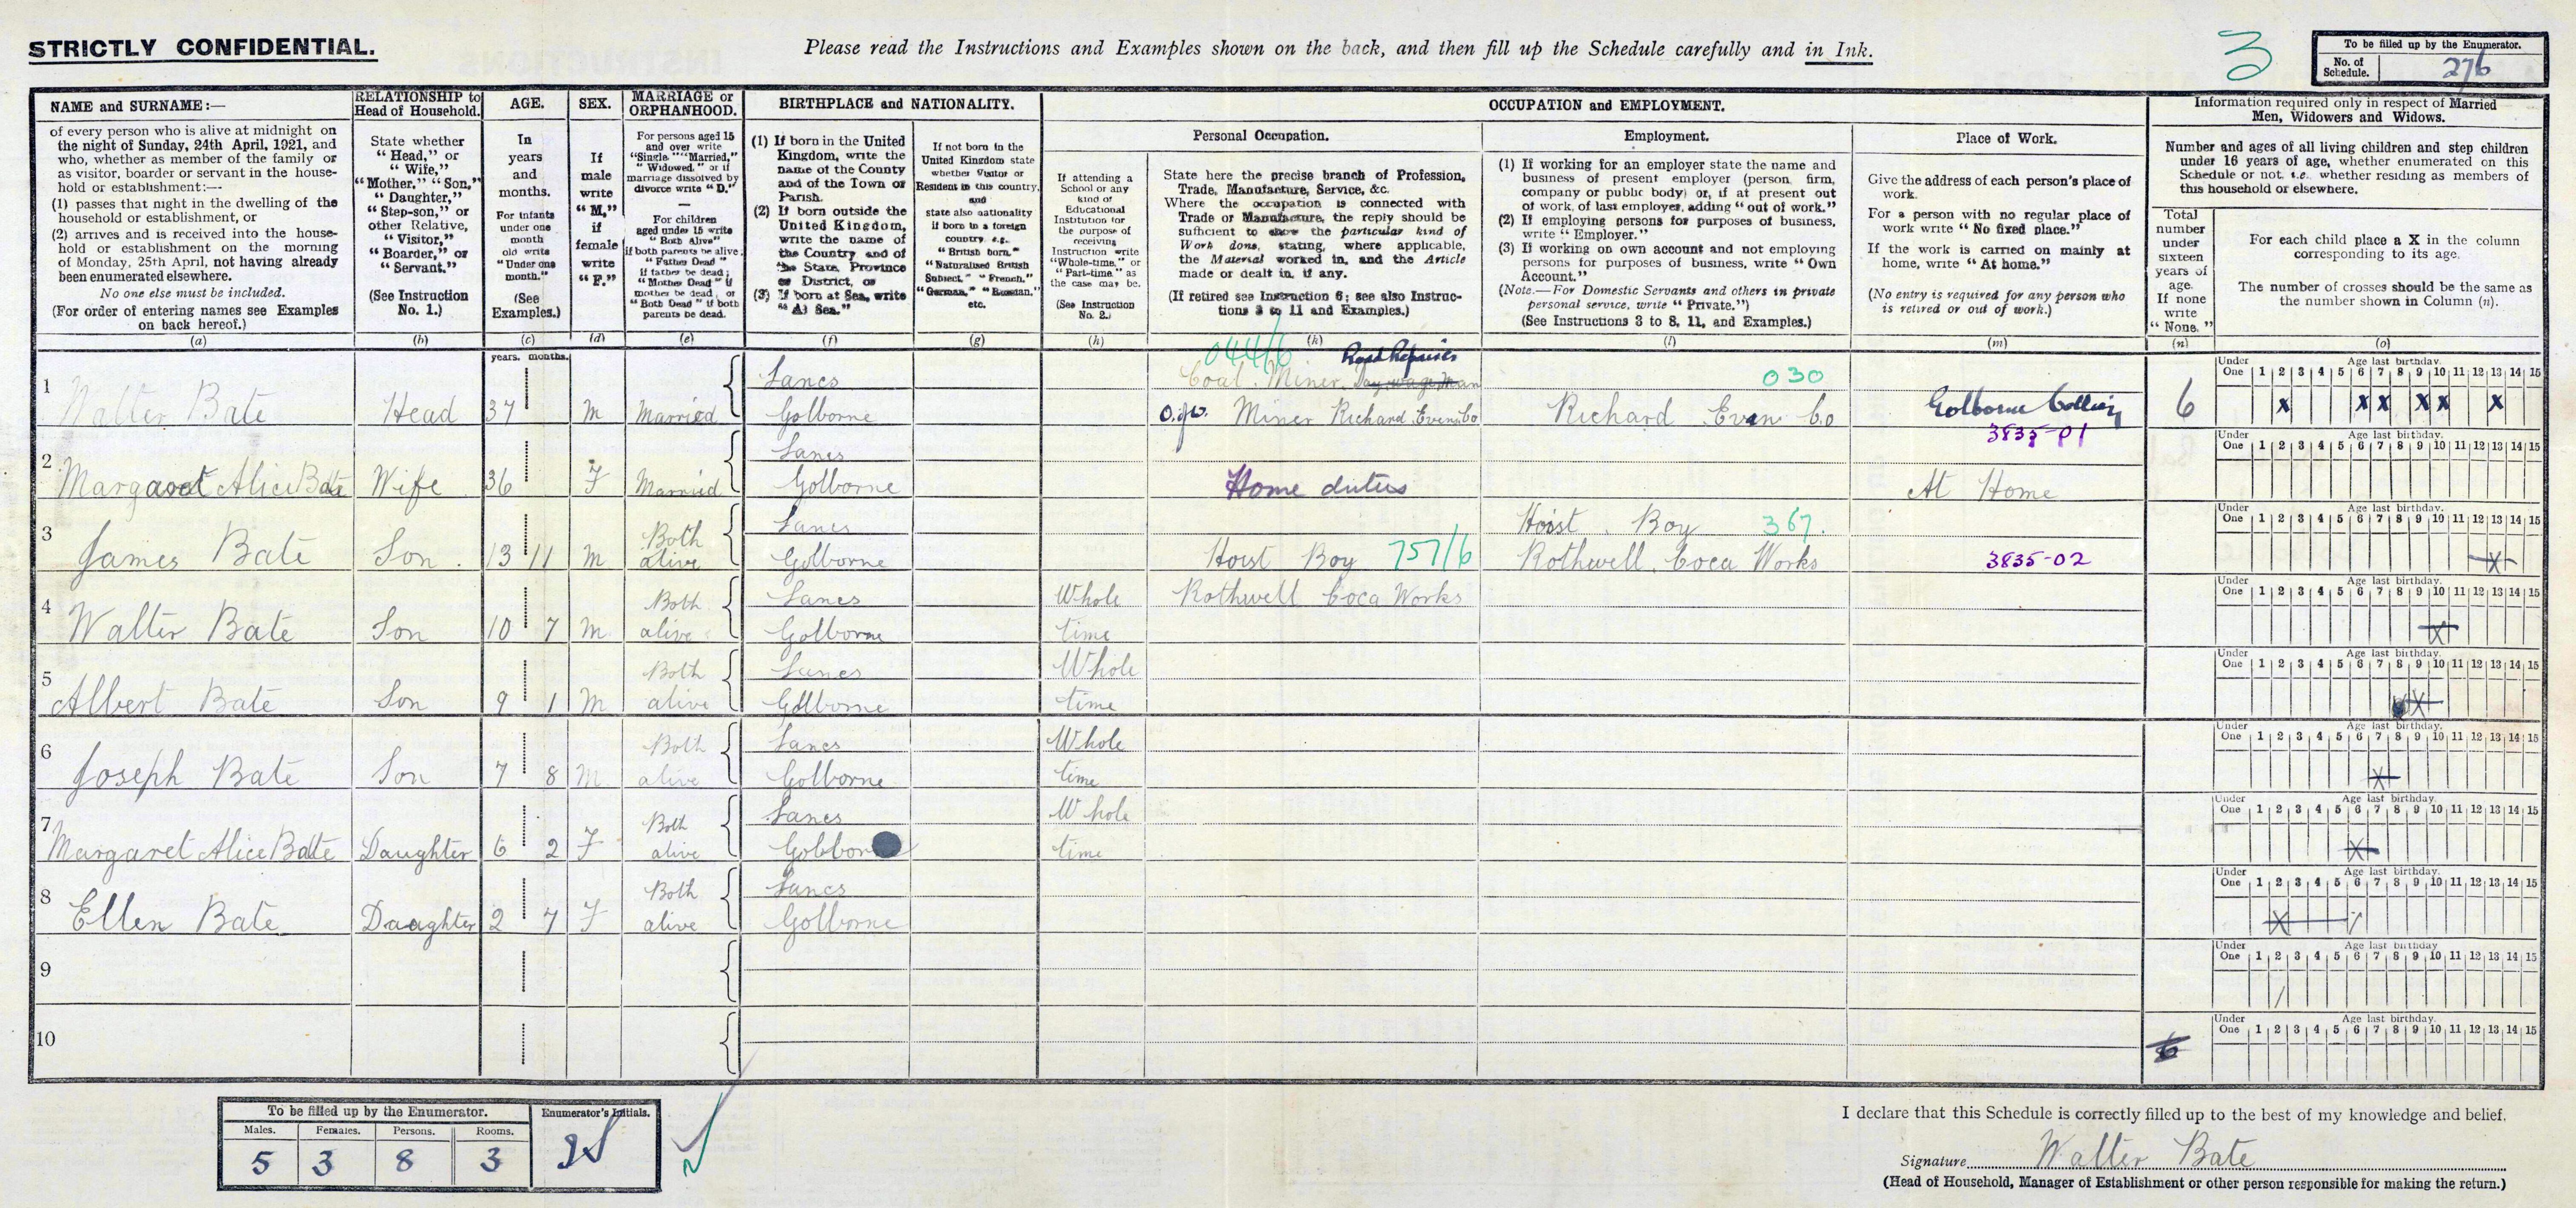 STRICTLY CONFIDENTIAL.
Please read the Instructions and Examples shown on the back, and then fill up the Schedule carefully and in Ink.
3
To be filled up by the Enumerator.
No. of Schedule. 276
NAME and SURNAME:—
of every person who is alive at midnight on
the night of Sunday, 24th April, 1921, and
who, whether as member of the family or
as visitor, boarder or servant in the house-
hold or establishment:—
(1) passes that night in the dwelling of the
household or establishment, or
(2) arrives and is received into the house-
hold or establishment on the morning
of Monday, 25th April, not having already
been enumerated elsewhere.
No one else must be included.
(For order of entering names see Examples
on back hereof.)
(a)
RELATIONSHIP to
Head of Household.
State whether
"Head," or
"Wife,"
"Mother," "Son,"
"Daughter,"
"Step-son," or
other Relative,
"Visitor,"
"Boarder," or
"Servant."
(See Instruction
No. 1.)
(b)
AGE.
In
years
and
months.
For infants
under one
month
old write
"Under one
month."
(See
Examples.)
(c)
SEX.
If
male
write
"M,"
if
female
write
"F."
(d)
MARRIAGE or
ORPHANHOOD.
For persons aged 15
and over write
"Single," "Married,"
"Widowed," or if
marriage dissolved by
divorce write "D."
—
For children
aged under 15 write
"Both Alive"
if both parents be alive,
"Father Dead"
if father be dead;
"Mother Dead" if
mother be dead, or
"Both Dead" if both
parents be dead.
(e)
BIRTHPLACE and NATIONALITY.
(1) If born in the United
Kingdom, write the
name of the County
and of the Town or
Parish.
(2) If born outside the
United Kingdom,
write the name of
the Country and of
the State, Province
or District, or
(3) If born at Sea, write
"At Sea."
(f)
If not born in the
United Kingdom state
whether Visitor or
Resident in this country,
and
state also nationality
if born in a foreign
country, e.g.,
"British born,"
"Naturalised British
Subject," "French,"
"German," "Russian,"
etc.
(g)
OCCUPATION and EMPLOYMENT.
If attending a
School or any
kind of
Educational
Institution for
the purpose of
receiving
Instruction write
"Whole-time," or
"Part-time," as
the case may be.
(See Instruction
No. 2.)
(h)
Personal Occupation.
State here the precise branch of Profession,
Trade, Manufacture, Service, &c.
Where the occupation is connected with
Trade or Manufacture, the reply should be
sufficient to show the particular kind of
Work done, stating, where applicable,
the Material worked in, and the Article
made or dealt in, if any.
(If retired see Instruction 6; see also Instruc-
tions 3 to 11 and Examples.)
(k)
Employment.
(1) If working for an employer state the name and
business of present employer (person, firm,
company or public body) or, if at present out
of work, of last employer, adding "out of work."
(2) If employing persons for purposes of business,
write "Employer."
(3) If working on own account and not employing
persons for purposes of business, write "Own
Account."
(Note.—For Domestic Servants and others in private
personal service, write "Private.")
(See Instructions 3 to 8, 11, and Examples.)
(l)
Place of Work.
Give the address of each person's place of
work.
For a person with no regular place of
work write "No fixed place."
If the work is carried on mainly at
home, write "At home."
(No entry is required for any person who
is retired or out of work.)
(m)
Information required only in respect of Married
Men, Widowers and Widows.
Number and ages of all living children and step children
under 16 years of age, whether enumerated on this
Schedule or not, i.e. whether residing as members of
this household or elsewhere.
Total
number
under
sixteen
years of
age.
If none
write
"None."
(n)
For each child place a X in the column
corresponding to its age.
The number of crosses should be the same as
the number shown in Column (n).
(o)
years. months.
044/6 Road Repairer
1 Lancs Coal Miner Day wage Man 030
Walter Bate Head 37 M Married Golborne Miner Richard Evens Co Richard Even Co Golborne Colliery 6 x x x x x x
Under One 1 2 3 4 5 6 7 8 9 10 11 12 13 14 15
Age last birthday.
3835-01
2 Lancs
Margaret Alice Bate Wife 36 F Married Golborne Home duties At Home
Under One 1 2 3 4 5 6 7 8 9 10 11 12 13 14 15
Age last birthday.
3 Both Lancs Hoist Boy 367.
James Bate Son 13 11 M alive Golborne Hoist Boy 757/6 Rothwell Coca Works 3835-02 X
Under One 1 2 3 4 5 6 7 8 9 10 11 12 13 14 15
Age last birthday.
4 Both Lancs Whole Rothwell Coca Works
Walter Bate Son 10 7 M alive Golborne time X
Under One 1 2 3 4 5 6 7 8 9 10 11 12 13 14 15
Age last birthday.
5 Both Lancs Whole
Albert Bate Son 9 1 M alive Golborne time X
Under One 1 2 3 4 5 6 7 8 9 10 11 12 13 14 15
Age last birthday.
6 Both Lancs Whole
Joseph Bate Son 7 8 M alive Golborne time X
Under One 1 2 3 4 5 6 7 8 9 10 11 12 13 14 15
Age last birthday.
7 Both Lancs Whole
Margaret Alice Bate Daughter 6 2 F alive time X
Under One 1 2 3 4 5 6 7 8 9 10 11 12 13 14 15
Age last birthday.
8 Both Lancs
Ellen Bate Daughter 2 7 F alive Golborne X
Under One 1 2 3 4 5 6 7 8 9 10 11 12 13 14 15
Age last birthday.
9
Under One 1 2 3 4 5 6 7 8 9 10 11 12 13 14 15
Age last birthday
10
Under One 1 2 3 4 5 6 7 8 9 10 11 12 13 14 15
Age last birthday.
To be filled up by the Enumerator.
Males. Females. Persons. Rooms.
5 3 8 3
Enumerator's Initials.
I declare that this Schedule is correctly filled up to the best of my knowledge and belief.
Signature Walter Bate
(Head of Household, Manager of Establishment or other person responsible for making the return.)